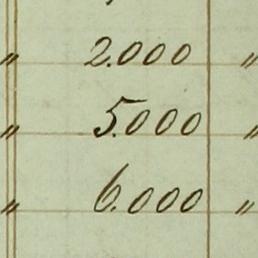 " 2.000 "
" 5.000 "
" 6.000 "